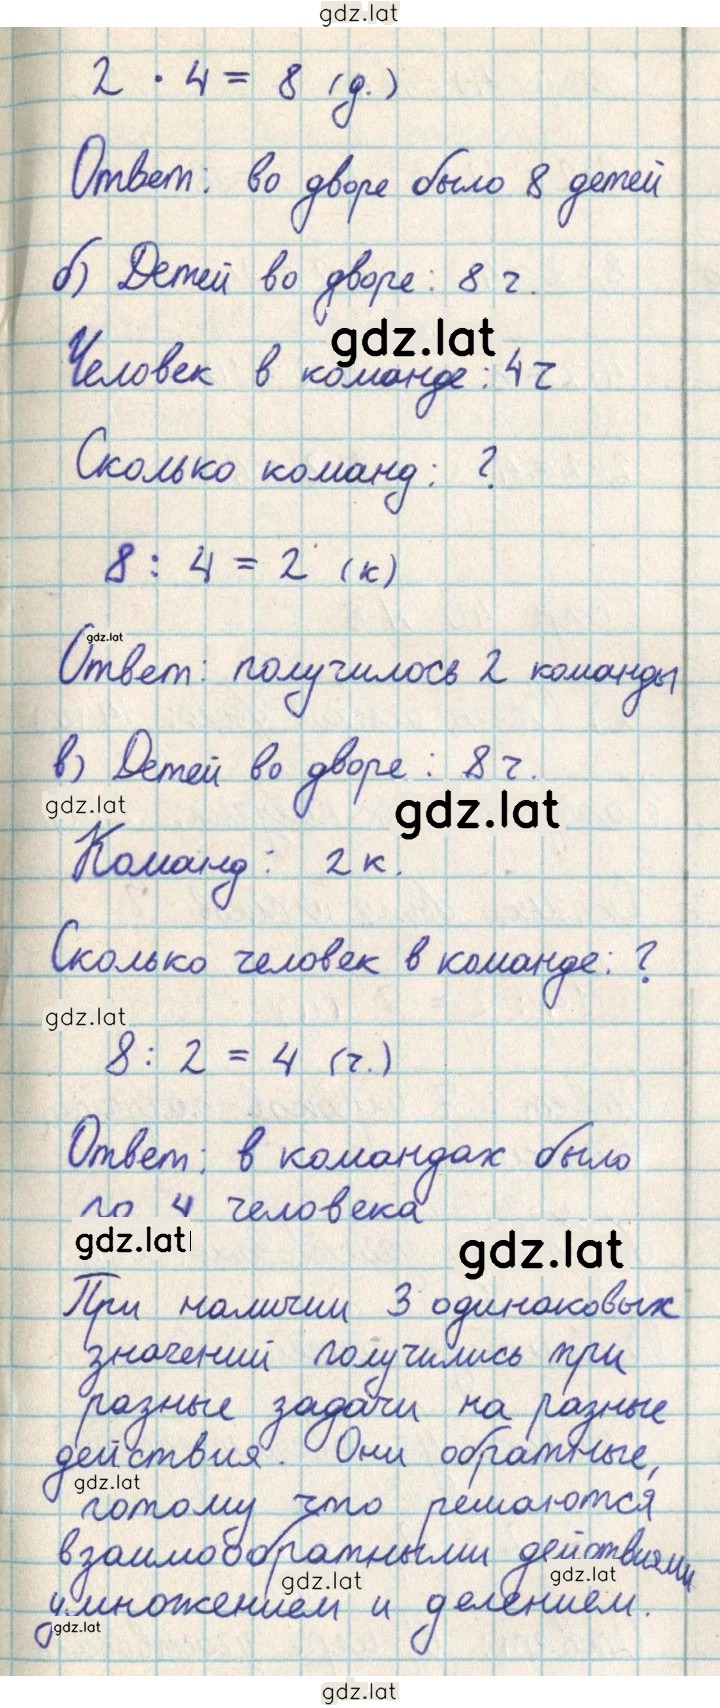 gdz.lat
2 · 4 = 8 (д.)
Ответ: во дворе было 8 детей
б) Детей во дворе: 8 ч.
gdz.lat
Человек в команде: 4 ч
Сколько команд: ?
8 : 4 = 2 (к)
gdz.lat
Ответ: получилось 2 команды
в) Детей во дворе: 8 ч.
gdz.lat
gdz.lat
Команд: 2 к.
Сколько человек в команде: ?
gdz.lat
8 : 2 = 4 (ч.)
Ответ: в командах было
по 4 человека
gdz.lat
gdz.lat
При наличии 3 одинаковых
значений получились три
разные задачи на разные
действия. Они обратные,
gdz.lat
потому что решаются
взаимообратными действиями
gdz.lat
gdz.lat
умножением и делением.
gdz.lat
gdz.lat